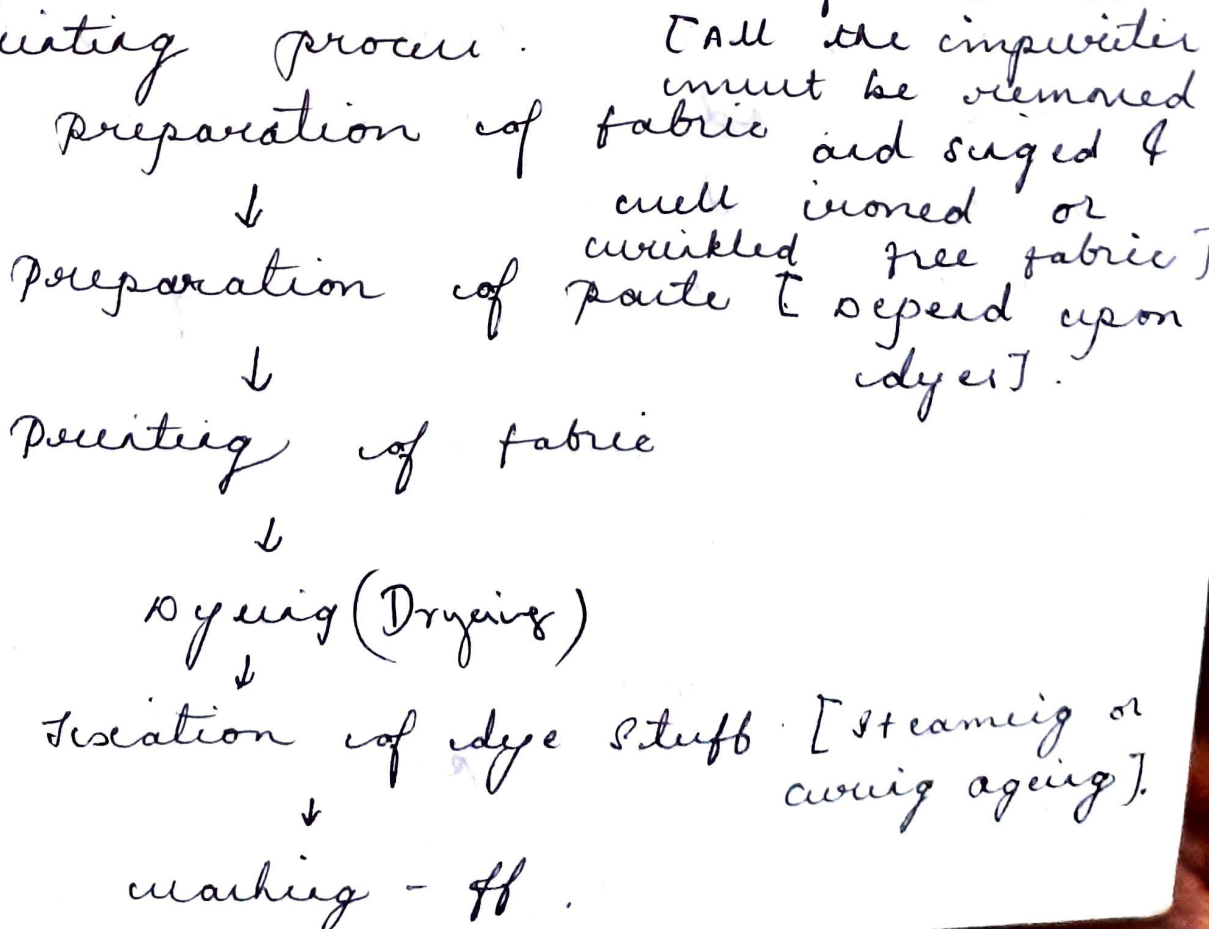 inting process. [All the impurities
must be removed
preparation of fabric and singed &
↓ well ironed or
wrinkled free fabric]
Preparation of paste [Depend upon
↓ dyes].
Printing of fabric
↓
Dyeing (Drying)
↓
Fixation of dye stuff. [steaming or
↓ curing ageing].
washing - ff.